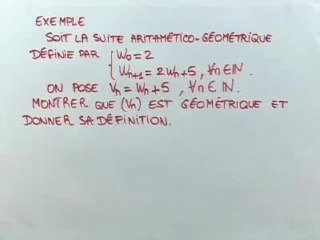 EXEMPLE
SOIT LA SUITE ARITHMÉTICO-GÉOMÉTRIQUE
DÉFINIE PAR { W₀ = 2
Wₙ₊₁ = 2Wₙ + 5 , ∀n∈ℕ.
ON POSE Vₙ = Wₙ + 5 , ∀n∈ℕ.
MONTRER QUE (Vₙ) EST GÉOMÉTRIQUE ET
DONNER SA DÉFINITION.